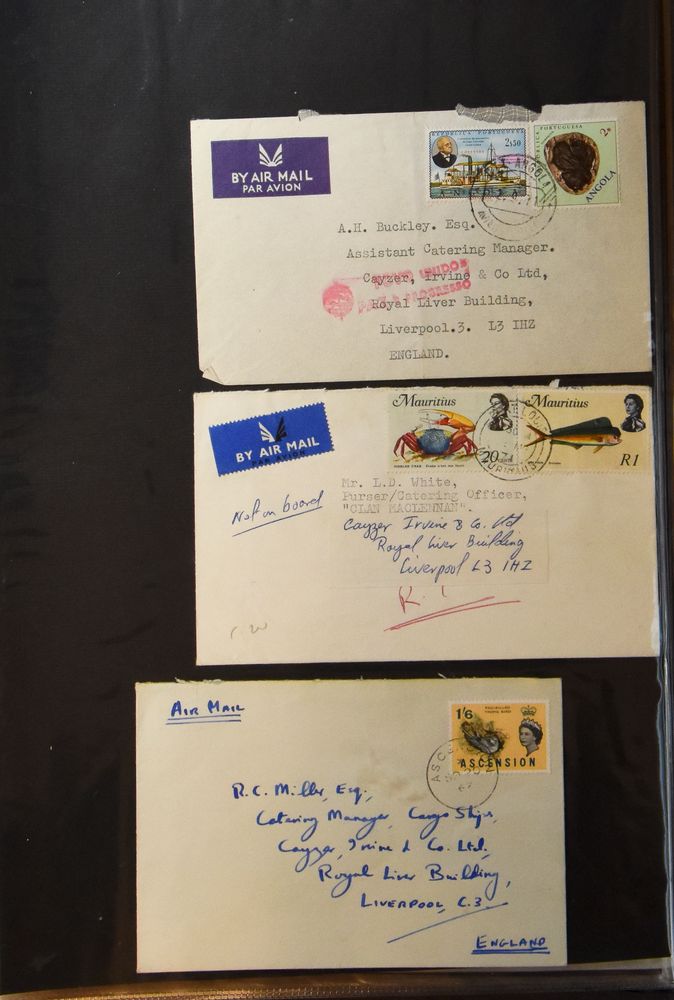 BY AIR MAIL
PAR AVION
REPÚBLICA PORTUGUESA
2$50
ANGOLA
PORTUGUESA
ANGOLA
A.H. Buckley. Esq.
Assistant Catering Manager.
Cayzer, Irvine & Co Ltd,
Royal Liver Building,
Liverpool.3. L3 IHZ
ENGLAND.
POVO UNIDO
PAZ E PROGRESSO
BY AIR MAIL
PAR AVION
Mauritius
20
Mauritius
R1
Not on board
Mr. L.D. White,
Purser/Catering Officer,
"CLAN MACLENNAN".
Cayzer Irvine & Co. Ltd
Royal Liver Building
Liverpool L3 1HZ
AIR MAIL
1/6
ASCENSION
R.C. Miller, Esq.,
Catering Manager, Cargo Ships,
Cayzer, Irvine & Co. Ltd.,
Royal Liver Building,
LIVERPOOL, C.3.
ENGLAND